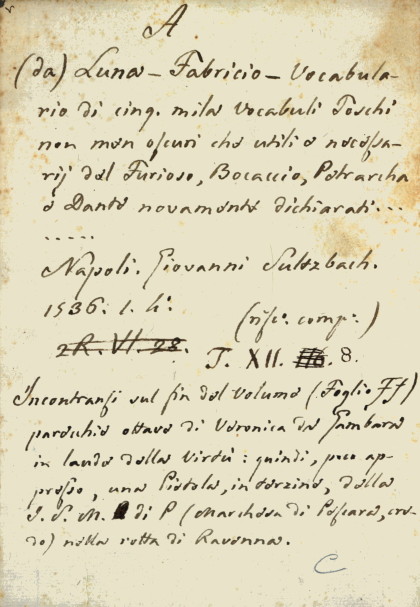 A
(da) Luna - Fabricio - Vocabula-
rio di cinq. mila Vocabuli Toschi
non men oscuri che utili e necessa-
rij del Furioso, Bocaccio, Petrarcha
e Dante novamente dichiarati ...
.....
Napoli. Giovanni Sultzbach.
1536. 1. h:
(risc. comp.)
2R. VI. 28.
T. XII. 8.
Incontransi sul fin del volume (Foglio Ff)
parechie ottave di Veronica da Gambara
in laude della Virtù: quindi, poco ap-
presso, una Pistola, in terzine, della
I. S. M. di P (Marchesa di Pescara, cre-
do) nella rotta di Ravenna.
C